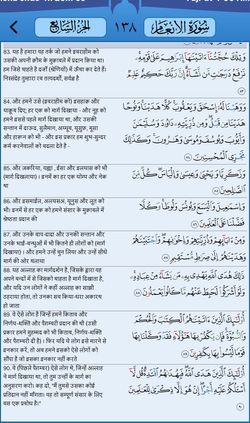 الجزء السابع
١٣٨
سورة الأنعام
83. यह है हमारा वह तर्क जो हमने इबराहीम को
उसकी अपनी क़ौम के मुक़ाबले में प्रदान किया था।
हम जिसे चाहते है दर्जों (श्रेणियों) में ऊँचा कर देते हैं।
निस्संदेह तुम्हारा रब तत्वदर्शी, सर्वज्ञ है
وَتِلْكَ حُجَّتُنَا ءَاتَيْنَٰهَا إِبْرَٰهِيمَ عَلَىٰ قَوْمِهِۦ
نَرْفَعُ دَرَجَٰتٍ مَّن نَّشَآءُ إِنَّ رَبَّكَ حَكِيمٌ عَلِيمٌ
٨٣
84. और हमने उसे (इबराहीम को) इसहाक़ और
याक़ूब दिए; हर एक को मार्ग दिखाया - और नूह को
हमने इससे पहले मार्ग दिखाया था, और उसकी
सन्तान में दाऊद, सुलैमान, अय्यूब, यूसुफ़, मूसा
और हारून को भी - और इस प्रकार हम शुभ-सुन्दर
कर्म करनेवालों को बदला देते है -
وَوَهَبْنَا لَهُۥٓ إِسْحَٰقَ وَيَعْقُوبَ كُلًّا هَدَيْنَا وَنُوحًا
هَدَيْنَا مِن قَبْلُ وَمِن ذُرِّيَّتِهِۦ دَاوُۥدَ وَسُلَيْمَٰنَ
وَأَيُّوبَ وَيُوسُفَ وَمُوسَىٰ وَهَٰرُونَ وَكَذَٰلِكَ
نَجْزِى ٱلْمُحْسِنِينَ ٨٤
85. और ज़करिया, यह्या , ईसा और इलयास को भी
(मार्ग दिखलाया) । इनमें का हर एक योग्य और नेक
था
وَزَكَرِيَّا وَيَحْيَىٰ وَعِيسَىٰ وَإِلْيَاسَ كُلٌّ مِّنَ
ٱلصَّٰلِحِينَ ٨٥
86. और इसमाईल, अलयसअ, यूनुस और लूत को
भी। इनमें से हर एक को हमने संसार के मुक़ाबले में
श्रेष्ठता प्रदान की
وَإِسْمَٰعِيلَ وَٱلْيَسَعَ وَيُونُسَ وَلُوطًا وَكُلًّا
فَضَّلْنَا عَلَى ٱلْعَٰلَمِينَ ٨٦
87. और उनके बाप-दादा और उनकी सन्तान और
उनके भाई-बन्धुओं में भी कितने ही लोगों को (मार्ग
दिखाया) । और हमने उन्हें चुन लिया और उन्हें सीधे
मार्ग की ओर चलाया
وَمِنْ ءَابَآئِهِمْ وَذُرِّيَّٰتِهِمْ وَإِخْوَٰنِهِمْ وَٱجْتَبَيْنَٰهُمْ
وَهَدَيْنَٰهُمْ إِلَىٰ صِرَٰطٍ مُّسْتَقِيمٍ ٨٧
88. यह अल्लाह का मार्गदर्शन है, जिसके द्वारा वह
अपने बन्दों में से जिसको चाहता है मार्ग दिखाता है,
और यदि उन लोगों ने कहीं अल्लाह का साझी
ठहराया होता, तो उनका सब किया-धरा अकारथ
हो जाता
ذَٰلِكَ هُدَى ٱللَّهِ يَهْدِى بِهِۦ مَن يَشَآءُ مِنْ عِبَادِهِۦ
وَلَوْ أَشْرَكُوا۟ لَحَبِطَ عَنْهُم مَّا كَانُوا۟ يَعْمَلُونَ ٨٨
89. वे ऐसे लोग है जिन्हें हमने किताब और
निर्णय-शक्ति और पैग़म्बरी प्रदान की थी (उसी
प्रकार हमने मुहम्मद को भी किताब, निर्णय-शक्ति
और पैग़म्बरी दी है) । फिर यदि ये लोग इसे मानने से
इनकार करें, तो अब हमने इसको ऐसे लोगों को
सौंपा है जो इसका इनकार नहीं करते
أُو۟لَٰٓئِكَ ٱلَّذِينَ ءَاتَيْنَٰهُمُ ٱلْكِتَٰبَ وَٱلْحُكْمَ
وَٱلنُّبُوَّةَ فَإِن يَكْفُرْ بِهَا هَٰٓؤُلَآءِ فَقَدْ وَكَّلْنَا بِهَا
قَوْمًا لَّيْسُوا۟ بِهَا بِكَٰفِرِينَ ٨٩
90. वे (पिछले पैग़म्बर) ऐसे लोग थे, जिन्हें अल्लाह
ने मार्ग दिखाया था, तो तुम उन्हीं के मार्ग का
अनुसरण करो। कह दो, "मैं तुमसे उसका कोई
प्रतिदान नहीं माँगता। वह तो सम्पूर्ण संसार के लिए
बस एक प्रबोध है।"
أُو۟لَٰٓئِكَ ٱلَّذِينَ هَدَى ٱللَّهُ فَبِهُدَىٰهُمُ ٱقْتَدِهْ قُل لَّآ
أَسْـَٔلُكُمْ عَلَيْهِ أَجْرًا إِنْ هُوَ إِلَّا ذِكْرَىٰ لِلْعَٰلَمِينَ
٩٠